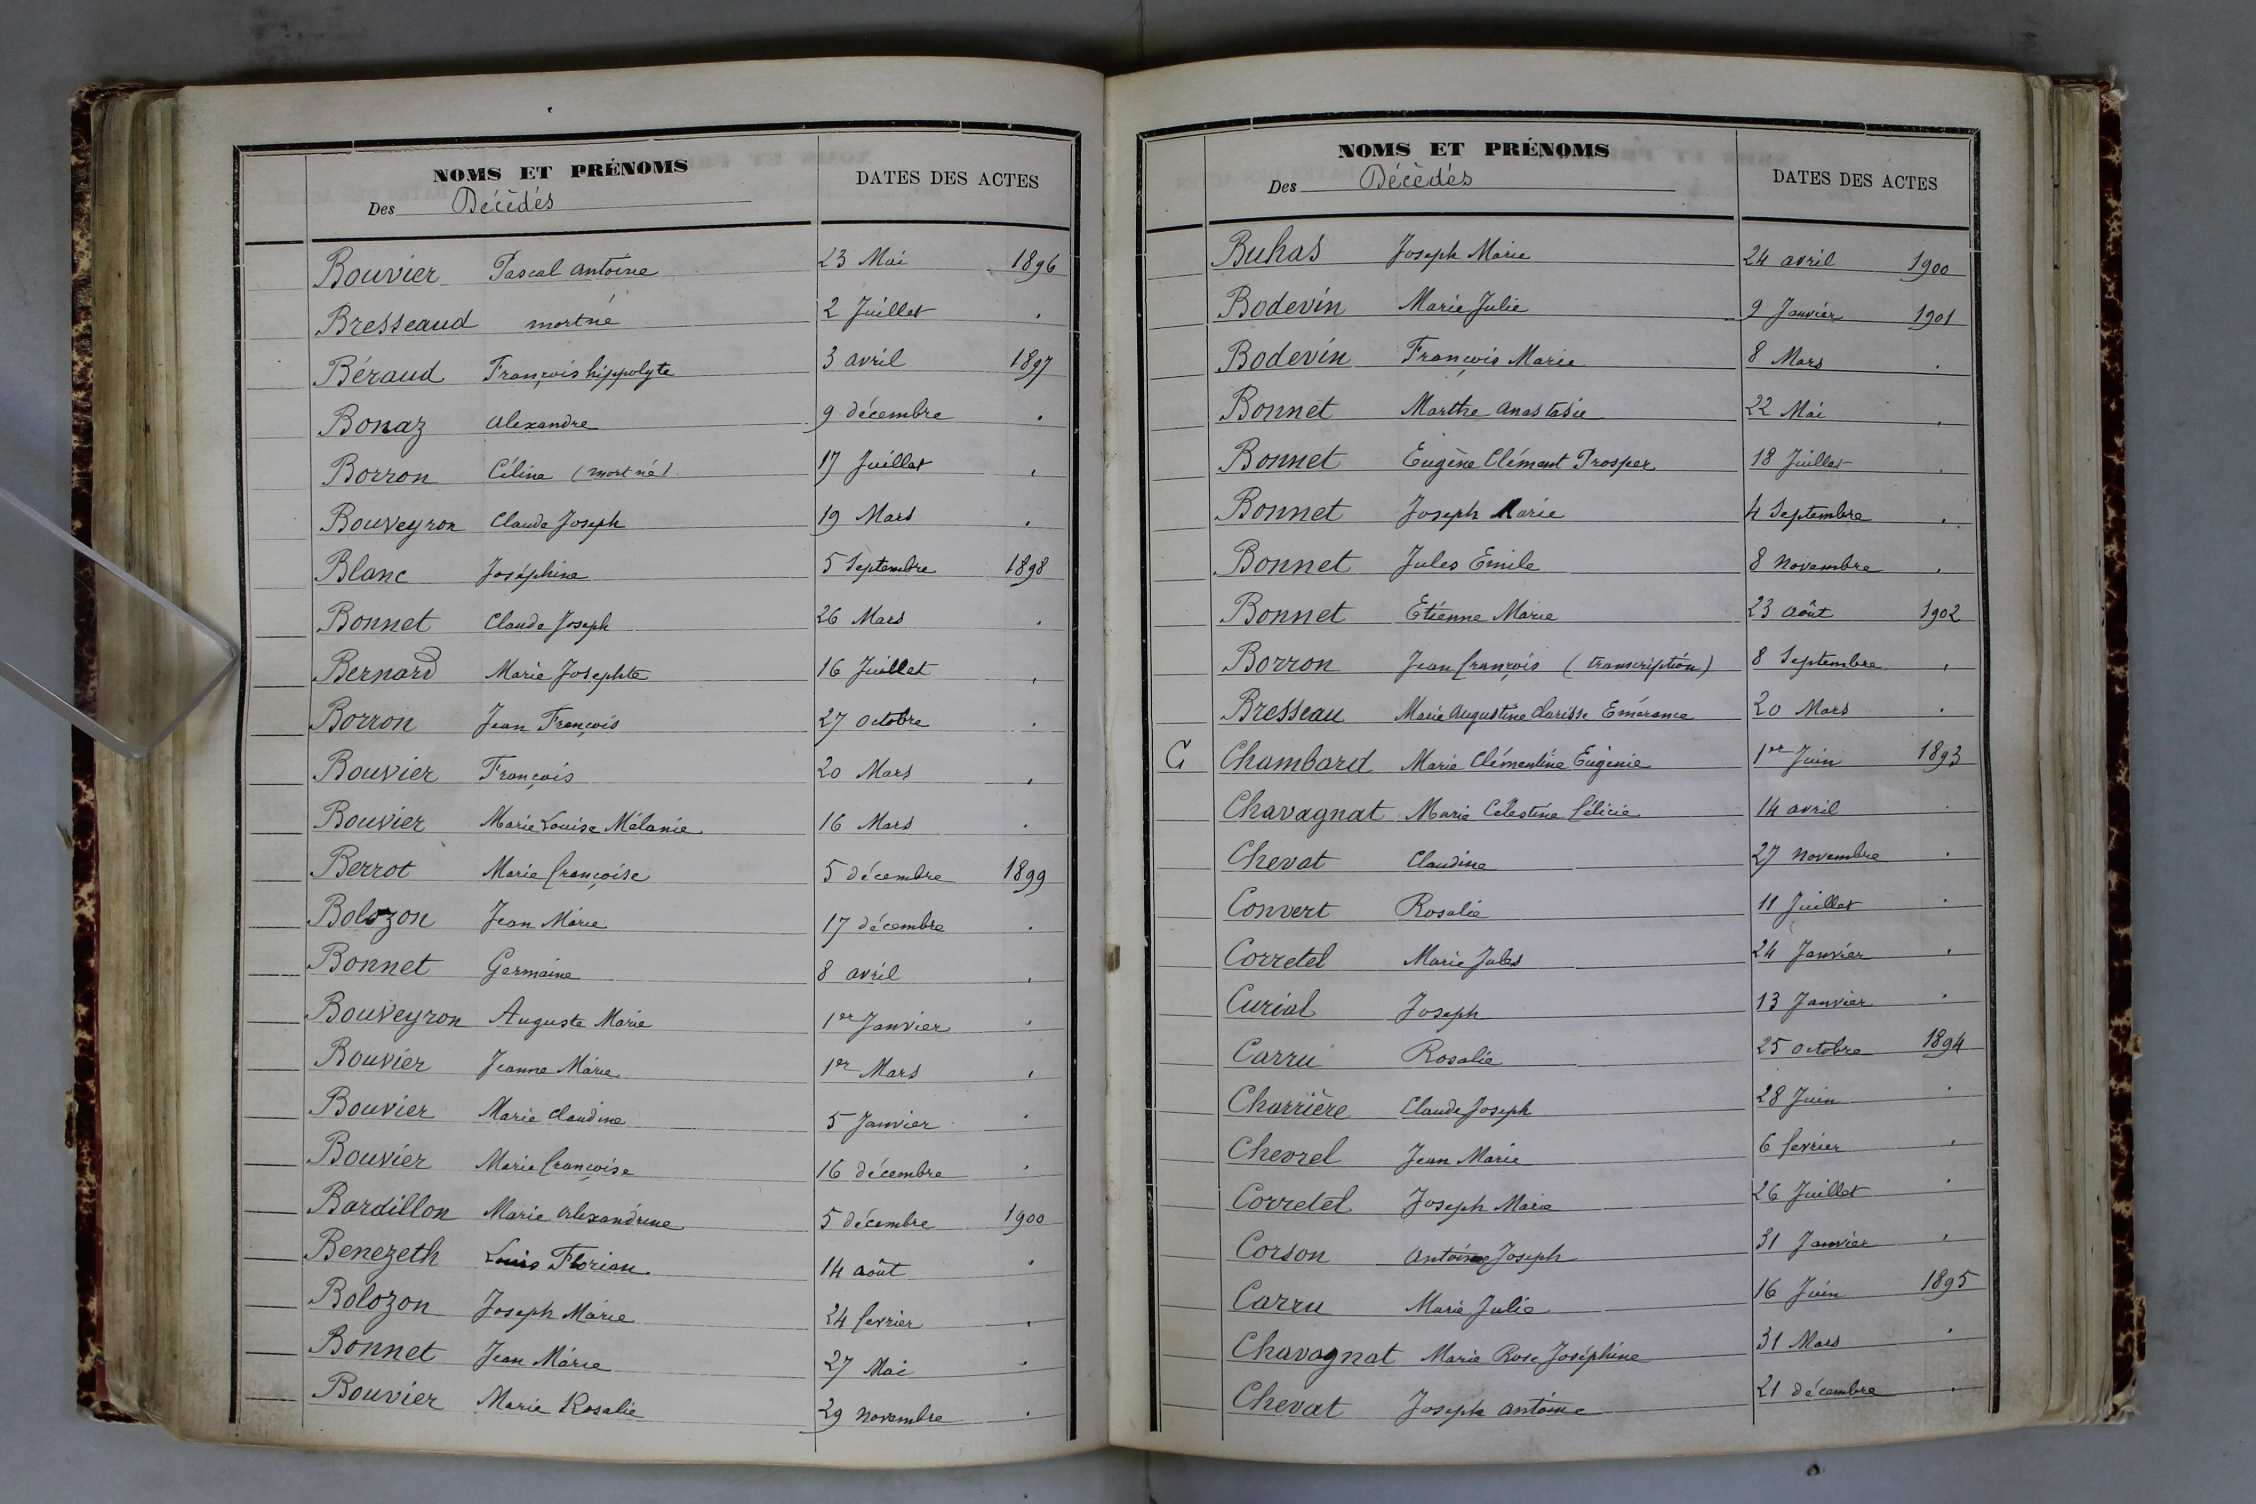 NOMS ET PRÉNOMS
DATES DES ACTES
Des Décédés
Bouvier Pascal Antoine 23 Mai 1896
Bresseaud mort né 2 Juillet .
Béraud François hippolyte 3 avril 1897
Bonaz Alexandre 9 décembre .
Borron Céline (mort né) 17 Juillet .
Bouveyron Claude Joseph 19 Mars .
Blanc Joséphine 5 Septembre 1898
Bonnet Claude Joseph 26 Mars .
Bernard Marie Josephte 16 Juillet .
Borron Jean François 27 Octobre .
Bouvier François 20 Mars .
Bouvier Marie Louise Mélanie 16 Mars .
Berrot Marie françoise 5 décembre 1899
Bolozon Jean Marie 17 décembre .
Bonnet Germaine 8 avril .
Bouveyron Auguste Marie 1er Janvier .
Bouvier Jeanne Marie 1er Mars .
Bouvier Marie Claudine 5 Janvier .
Bouvier Marie françoise 16 décembre .
Bardillon Marie Alexandrine 5 décembre 1900
Benezeth Louis Florian 14 août .
Bolozon Joseph Marie 24 fevrier .
Bonnet Jean Marie 27 Mai .
Bouvier Marie Rosalie 29 novembre .
NOMS ET PRÉNOMS
DATES DES ACTES
Des Décédés
Buhas Joseph Marie 24 avril 1900
Bodevin Marie Julie 9 Janvier 1901
Bodevin François Marie 8 Mars .
Bonnet Marthe Anastasie 22 Mai .
Bonnet Eugène Clément Prosper 18 Juillet .
Bonnet Joseph Marie 4 Septembre .
Bonnet Jules Emile 8 Novembre .
Bonnet Etienne Marie 23 août 1902
Borron Jean françois (transcription) 8 Septembre .
Bresseau Marie Augustine Clarisse Emérance 20 Mars .
C Chambard Marie Clémentine Eugénie 1er Juin 1893
Chavagnat Marie Célestine félicie 14 avril .
Chevat Claudine 27 novembre .
Convert Rosalie 11 Juillet .
Corretel Marie Jules 24 Janvier .
Curial Joseph 13 Janvier .
Carru Rosalie 25 octobre 1894
Charrière Claude Joseph 28 Juin .
Chevrel Jean Marie 6 fevrier .
Corretel Joseph Marie 26 Juillet .
Corson Antoine Joseph 31 Janvier .
Carru Marie Julie 16 Juin 1895
Chavagnat Marie Rose Joséphine 31 Mars .
Chevat Joseph antoine 21 décembre .